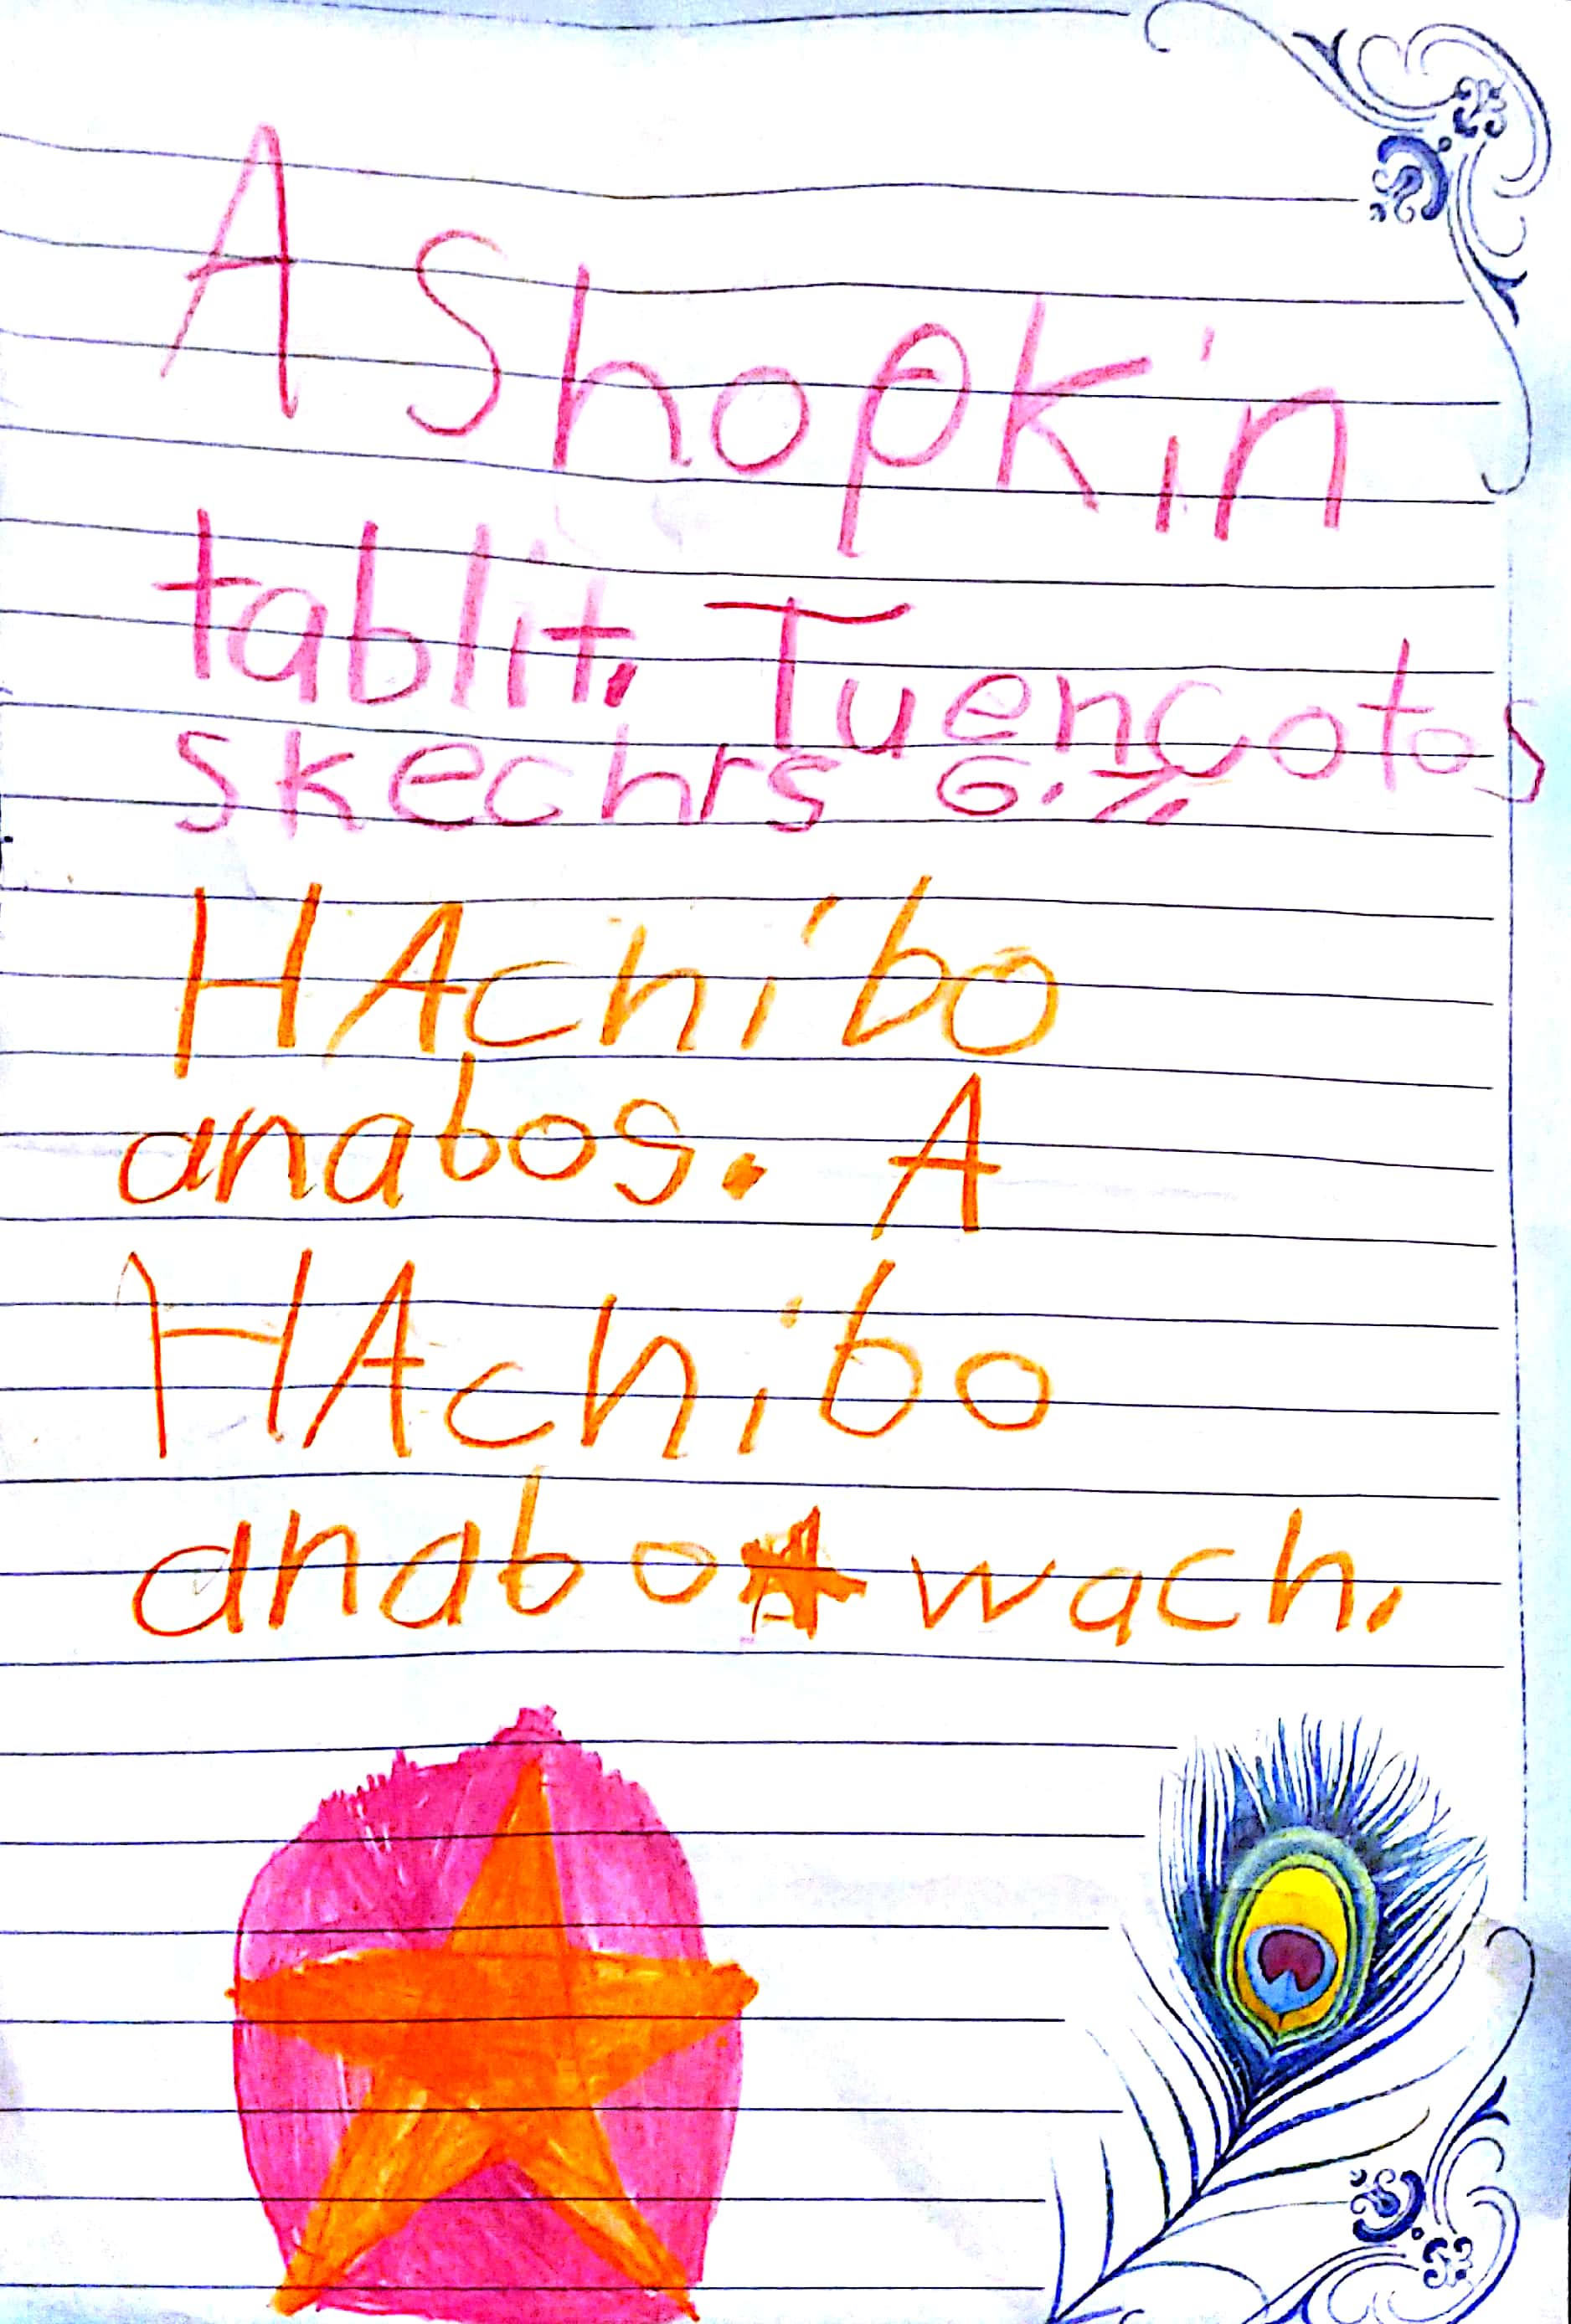 A Shopkin
tablit. Tuencotos
skechrs G.Z.
HAchibo
anabos. A
HAchibo
anabo wach.